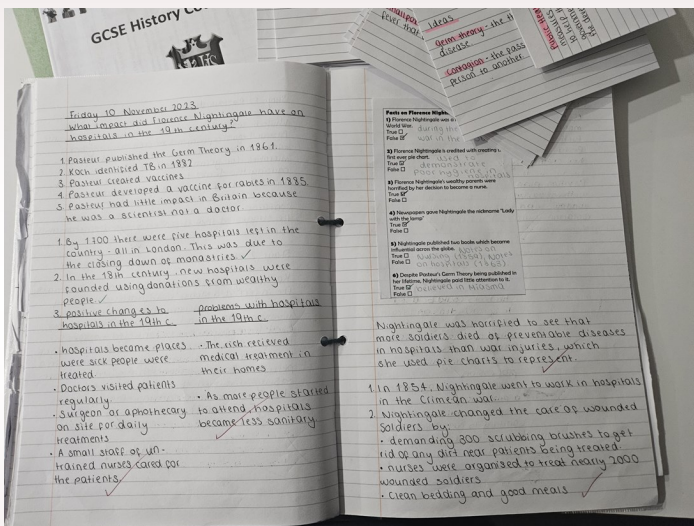 GCSE History
fever that
Ideas
Germ theory - the
disease
Contagion - the pass
person to another
Friday 10 November 2023
What impact did Florence Nightingale have on
hospitals in the 19th century?
1. Pasteur published the Germ Theory in 1861.
2. Koch identified TB in 1882
3. Pasteur created vaccines
4. Pasteur developed a vaccine for rabies in 1885.
5. Pasteur had little impact in Britain because
he was a scientist not a doctor.
1. By 1700 there were five hospitals left in the
country - all in London. This was due to
the closing down of monastries.
2. In the 18th century, new hospitals were
founded using donations from wealthy
people.
3. positive changes to
hospitals in the 19th c.
• hospitals became places
were sick people were
treated.
• Doctors visited patients
regularly.
• Surgeon or apothecary
on site for daily
treatments
• A small staff of un-
trained nurses cared for
the patients.
problems with hospitals
in the 19th c.
• The rich recieved
medical treatment in
their homes
• As more people started
to attend, hospitals
became less sanitary.
Facts on Florence Night
1) Florence Nightingale was a
World War.
True
False
during the
war in the
2) Florence Nightingale is credited with creating
first ever pie chart.
True
False
used to
demonstrate
poor hygiene in
3) Florence Nightingale's wealthy parents were
horrified by her decision to become a nurse.
True
False
4) Newspapers gave Nightingale the nickname 'Lady
with the lamp'
True
False
5) Nightingale published two books which became
influential across the globe.
True
False
Notes on
Nursing (1859) Notes
on hospitals (1863)
6) Despite Pasteur's Germ Theory being published in
her lifetime, Nightingale paid little attention to it.
True
False
believed in Miasma
Nightingale was horrified to see that
more soldiers died of preventable diseases
in hospitals than war injuries, which
she used pie charts to represent.
1. In 1854, Nightingale went to work in hospitals
in the Crimean war.
2. Nightingale changed the care of wounded
soldiers by:
• demanding 300 scrubbing brushes to get
rid of any dirt near patients being treated.
• nurses were organised to treat nearly 2000
wounded soldiers
• clean bedding and good meals